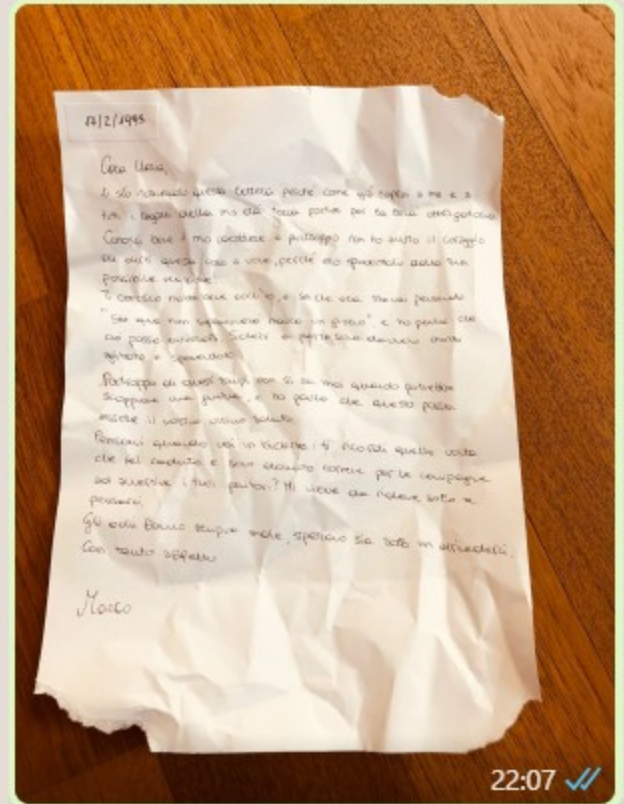 17/2/1945
Cara
ti sto scrivendo questa lettera perché come già saprai a me e a
tutti i ragazzi della mia età tocca partire per la leva obbligatoria
Conosci bene il mio carattere e purtroppo non ho avuto il coraggio
di dirti questa cosa a voce, perché ero spaventato dalla tua
possibile reazione
Ti conosco
"So che non", e ho paura che
ciò possa
agitato e spaventato
Purtroppo di questi tempi non si sa mai quando potrebbe
scoppiare una guerra, e ho paura che questo possa
essere il nostro ultimo saluto.
Pensami quando vai in bicicletta: ti ricordi quella volta
che sei caduta e sono dovuto correre per le campagne
ad avvertire i tuoi genitori? Mi viene da ridere solo a
pensarci.
Gli addii fanno sempre male, speriamo sia solo un arrivederci.
Con tanto affetto
Marco
22:07